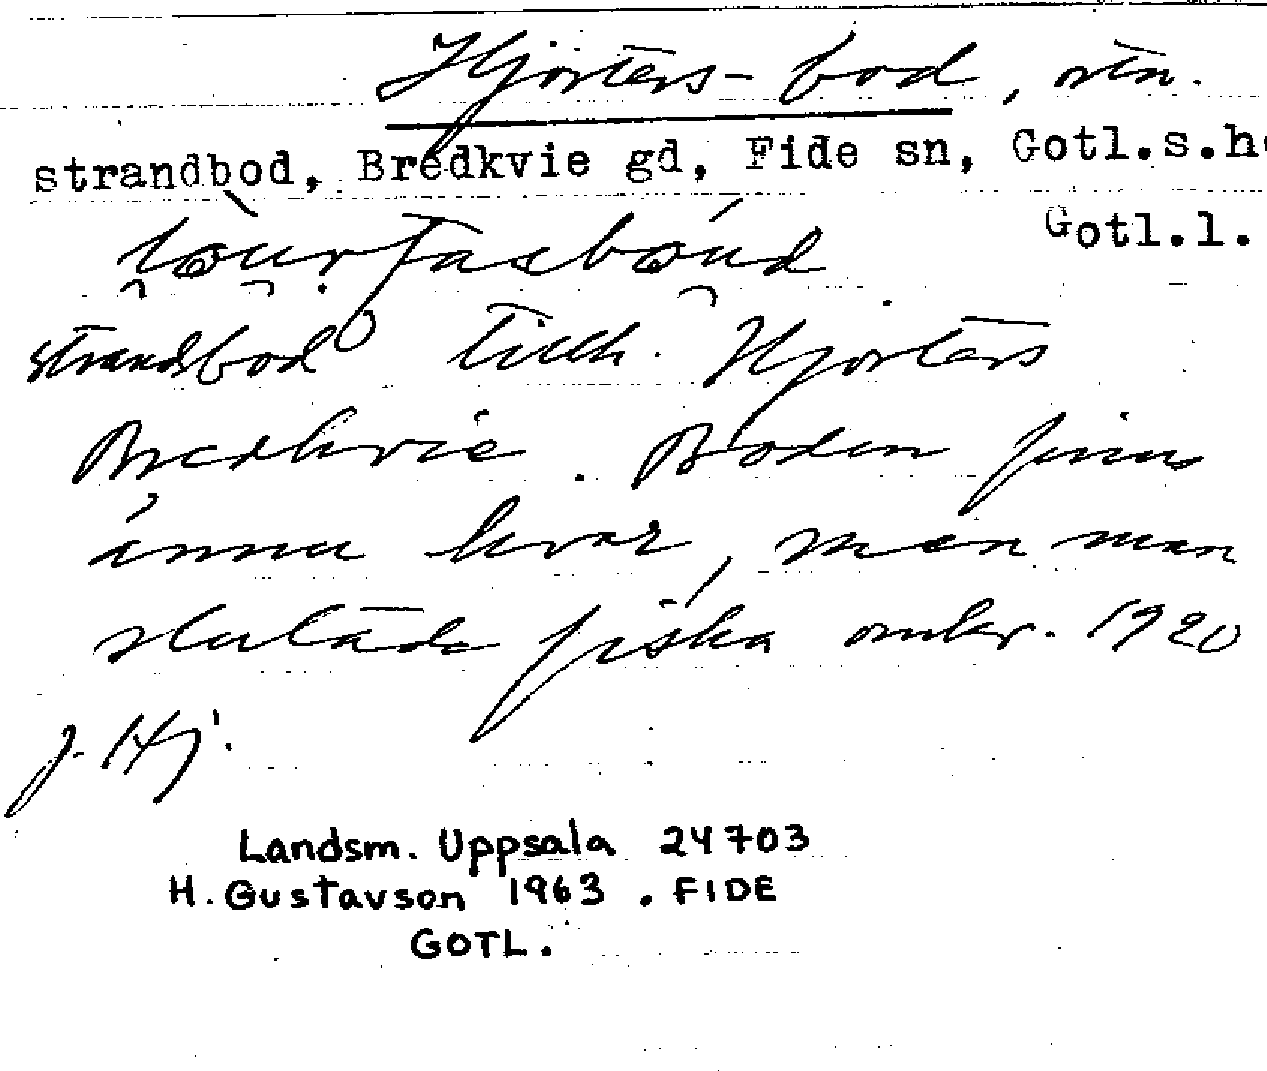 Hjorters-bod, ortn.
strandbod, Bredkvie gd, Fide sn, Gotl.s.h
Gotl.l.
strandbod tillh. Hjorters
Bredkvie. Boden finns
ännu kvar, men man
slutade fiska omkr. 1920
J. Hj.
Landsm. Uppsala 24703
H. Gustavson 1963. FIDE
GOTL.